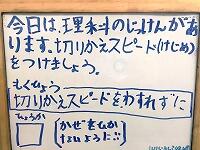 今日は、理科のじっけんがあ
ります。切りかえスピード(けじめ)
をつけましょう。
もくひょう
切りかえスピードをわすれずに
ひょうか
かぜをひか
ないように